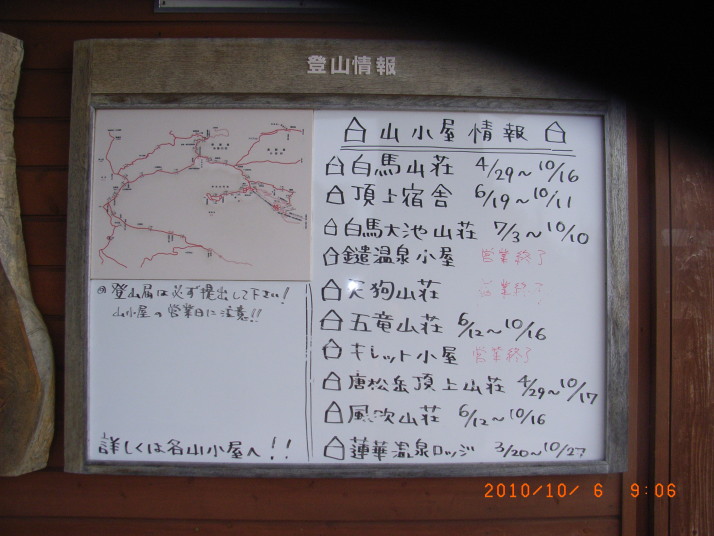 登山情報
山小屋情報
白馬山荘 4/29~10/16
頂上宿舎 6/19~10/11
白馬大池山荘 7/3~10/10
鑓温泉小屋 営業終了
天狗山荘 営業終了
五竜山荘 6/12~10/16
キレット小屋 営業終了
唐松岳頂上山荘 4/29~10/17
風吹山荘 6/12~10/16
蓮華温泉ロッジ 3/20~10/27
登山届は必ず提出して下さい!
山小屋の営業日に注意!!
詳しくは各山小屋へ!!
2010/10/ 6 9:06